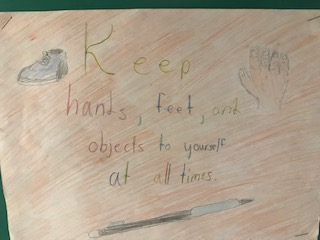 Keep
hands, feet, and
objects to yourself
at all times.